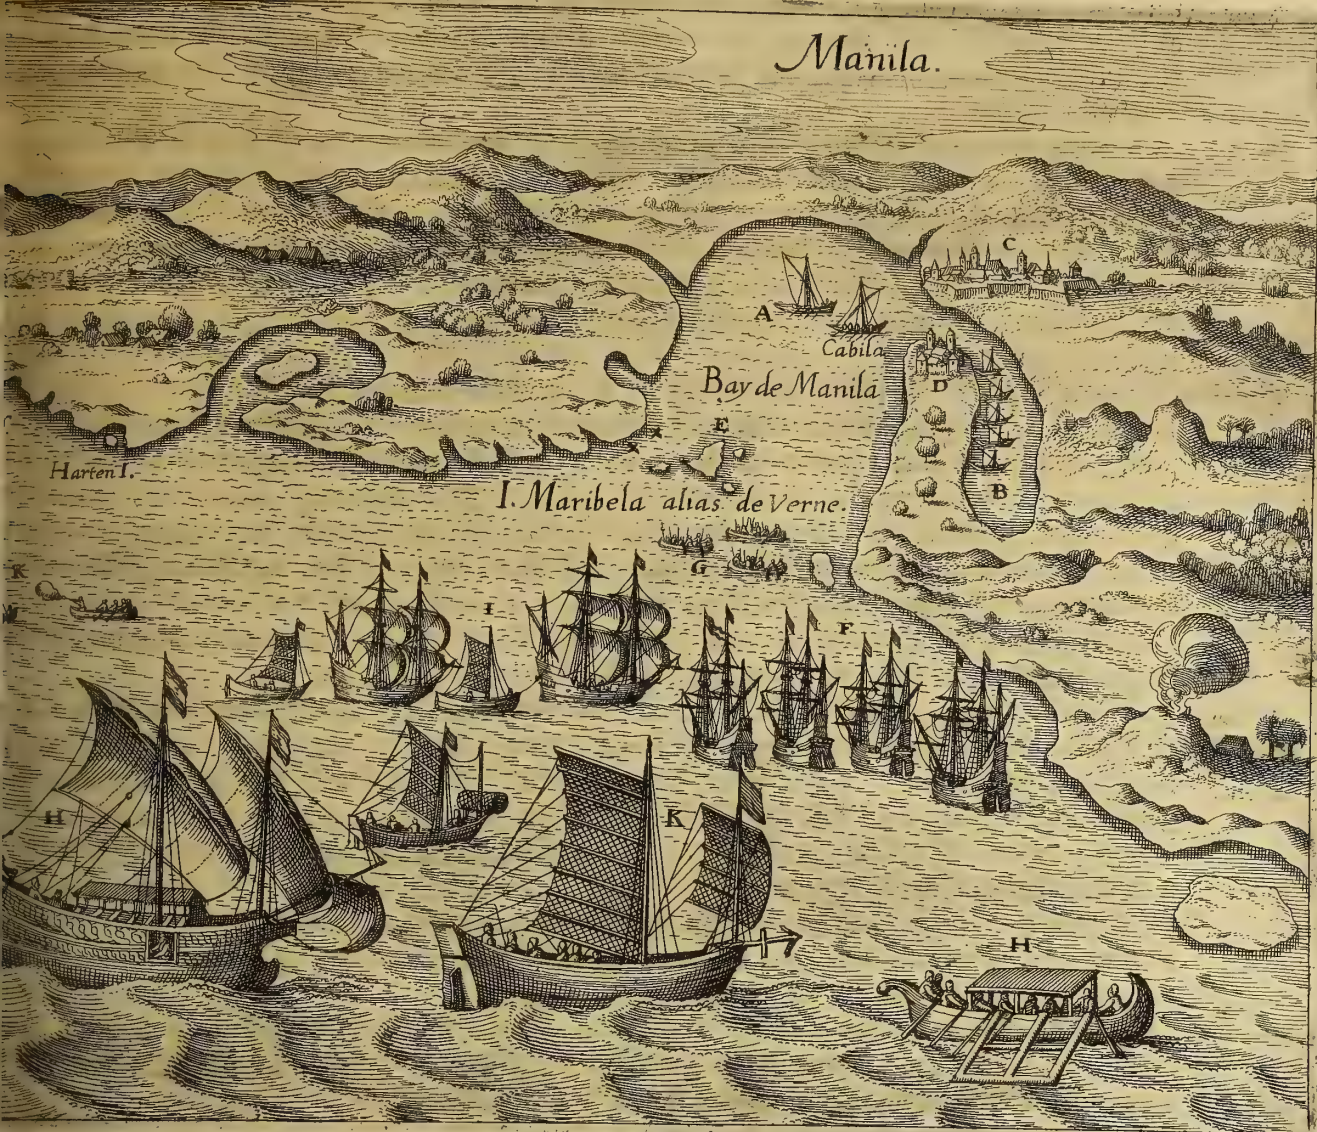 Manila.
C
A
Cabila
Bay de Manila
D
E
Harten I.
B
I. Maribela alias de Verne.
G
K
I
F
H
K
H